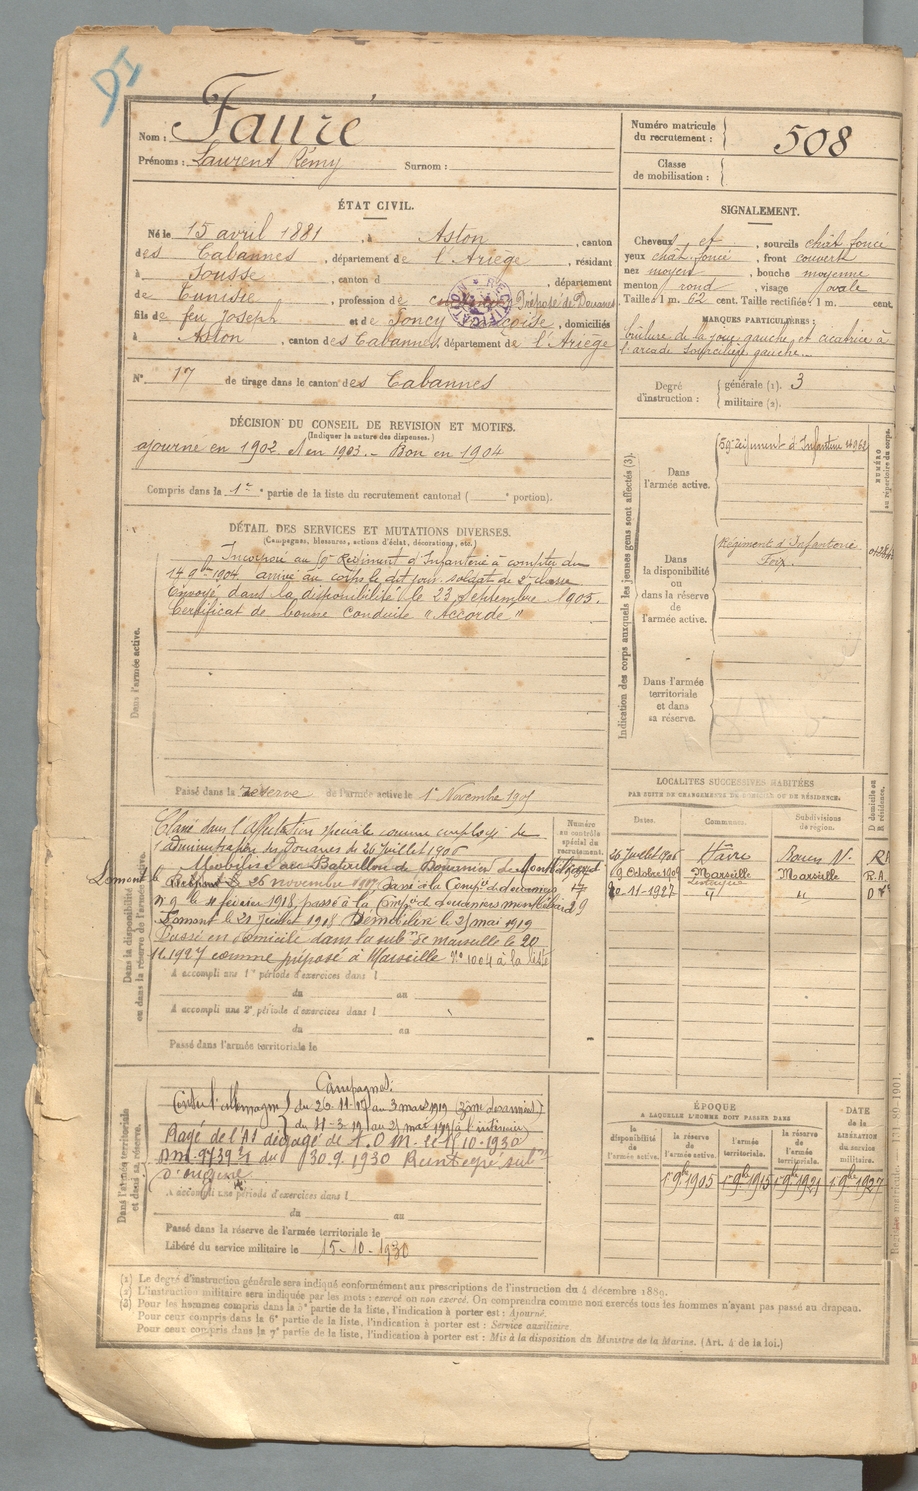 95
Nom : Fauré
Prénoms : Laurent Rémy Surnom :
Numéro matricule du recrutement : 508
Classe de mobilisation :
ÉTAT CIVIL.
Né le 15 avril 1881, à Aston, canton
des Cabannes, département de l'Ariège, résidant
à Sousse, canton d, département
de Tunisie, profession de Préposé de Douanes
RECTIFICATION
fils de feu Joseph et de Soncy Françoise, domiciliés
à Aston, canton des Cabannes, département de l'Ariège
N° 17 de tirage dans le canton des Cabannes
SIGNALEMENT.
Cheveux et, sourcils chât foncé
yeux chât foncé, front couvert
nez moyen, bouche moyenne
menton rond, visage ovale
Taille : 1 m. 62 cent. Taille rectifiée : 1 m. cent.
MARQUES PARTICULIÈRES :
brûlure de la joue gauche et cicatrice à
l'arcade sourcilière gauche.
Degré d'instruction : générale (1). 3
militaire (2).
DÉCISION DU CONSEIL DE REVISION ET MOTIFS.
(Indiquer la nature des dispenses.)
ajourné en 1902 et en 1903. – Bon en 1904
Compris dans la 1re partie de la liste du recrutement cantonal ( portion).
Indication des corps auxquels les jeunes gens sont affectés (3).
NUMÉRO au répertoire du corps.
Dans l'armée active.
59e Régiment d'Infanterie
Dans la disponibilité ou dans la réserve de l'armée active.
Régiment d'Infanterie
Foix.
Dans l'armée territoriale et dans sa réserve.
DÉTAIL DES SERVICES ET MUTATIONS DIVERSES.
(Campagnes, blessures, actions d'éclat, décorations, etc.)
Dans l'armée active.
Incorporé au Régiment d'Infanterie à compter du
14 9bre 1904 arrivé au corps le dit jour. soldat de 2e classe
Envoyé dans la disponibilité le 23 Septembre 1905.
Certificat de bonne conduite "Accordé"
Passé dans la réserve de l'armée active le 1er Novembre 190
Dans la disponibilité ou dans la réserve de l'armée active.
Numéro au contrôle spécial du recrutement.
Classé dans l'affectation spéciale comme employé de
l'administration des Douanes du 26 Juillet 1906
Mobilisé au Bataillon de Douanier de
Lomont le 26 novembre passé à la Comp.ie de douaniers
n° 9 le 11 février 1918, passé à la Comp.ie de douaniers montbéliard
Lomont le 21 Juillet 1918 Démobilisé le mai 1919
Passé en domicile dans la subon de Marseille le 20
11.1927 comme préposé à Marseille N° 1004 à la liste
A accompli une 1re période d'exercices dans l
du au
A accompli une 2e période d'exercices dans l
du au
Passé dans l'armée territoriale le
LOCALITÉS SUCCESSIVES HABITÉES
PAR SUITE DE CHANGEMENTS DE DOMICILE OU DE RÉSIDENCE.
Dates. Communes. Subdivisions de région. D domicile ou R résidence.
26 Juillet 1906 Hâvre Rouen N. R
9 Octobre 1909 Marseille Marseille R.A.
20-11-1927 " " D
Dans l'armée territoriale et dans sa réserve.
Campagnes :
Contre l'Allemagne du 26-11-17 au 3 mars 1919
au mai 1919 à l'intérieur
Rayé de l'AS dégagé de T.O.M. le 15.10-1930
du 30.9.1930 Réintégré subon
d'origine
A accompli une période d'exercices dans l
du au
Passé dans la réserve de l'armée territoriale le
Libéré du service militaire le 15-10-1930
ÉPOQUE
A LAQUELLE L'HOMME DOIT PASSER DANS
la disponibilité de l'armée active. la réserve de l'armée active. l'armée territoriale. la réserve de l'armée territoriale.
DATE de la LIBÉRATION du service militaire.
1er 9bre 1905 1er 9bre 1915 1er 9bre 1921 1er 9bre 1927
(1) Le degré d'instruction générale sera indiqué conformément aux prescriptions de l'instruction du 4 décembre 1889.
(2) L'instruction militaire sera indiquée par les mots : exercé ou non exercé. On comprendra comme non exercés tous les hommes n'ayant pas passé au drapeau.
(3) Pour les hommes compris dans la 3e partie de la liste, l'indication à porter est : Ajourné.
Pour ceux compris dans la 6e partie de la liste, l'indication à porter est : Service auxiliaire.
Pour ceux compris dans la 7e partie de la liste, l'indication à porter est : Mis à la disposition du Ministre de la Marine. (Art. 4 de la loi.)